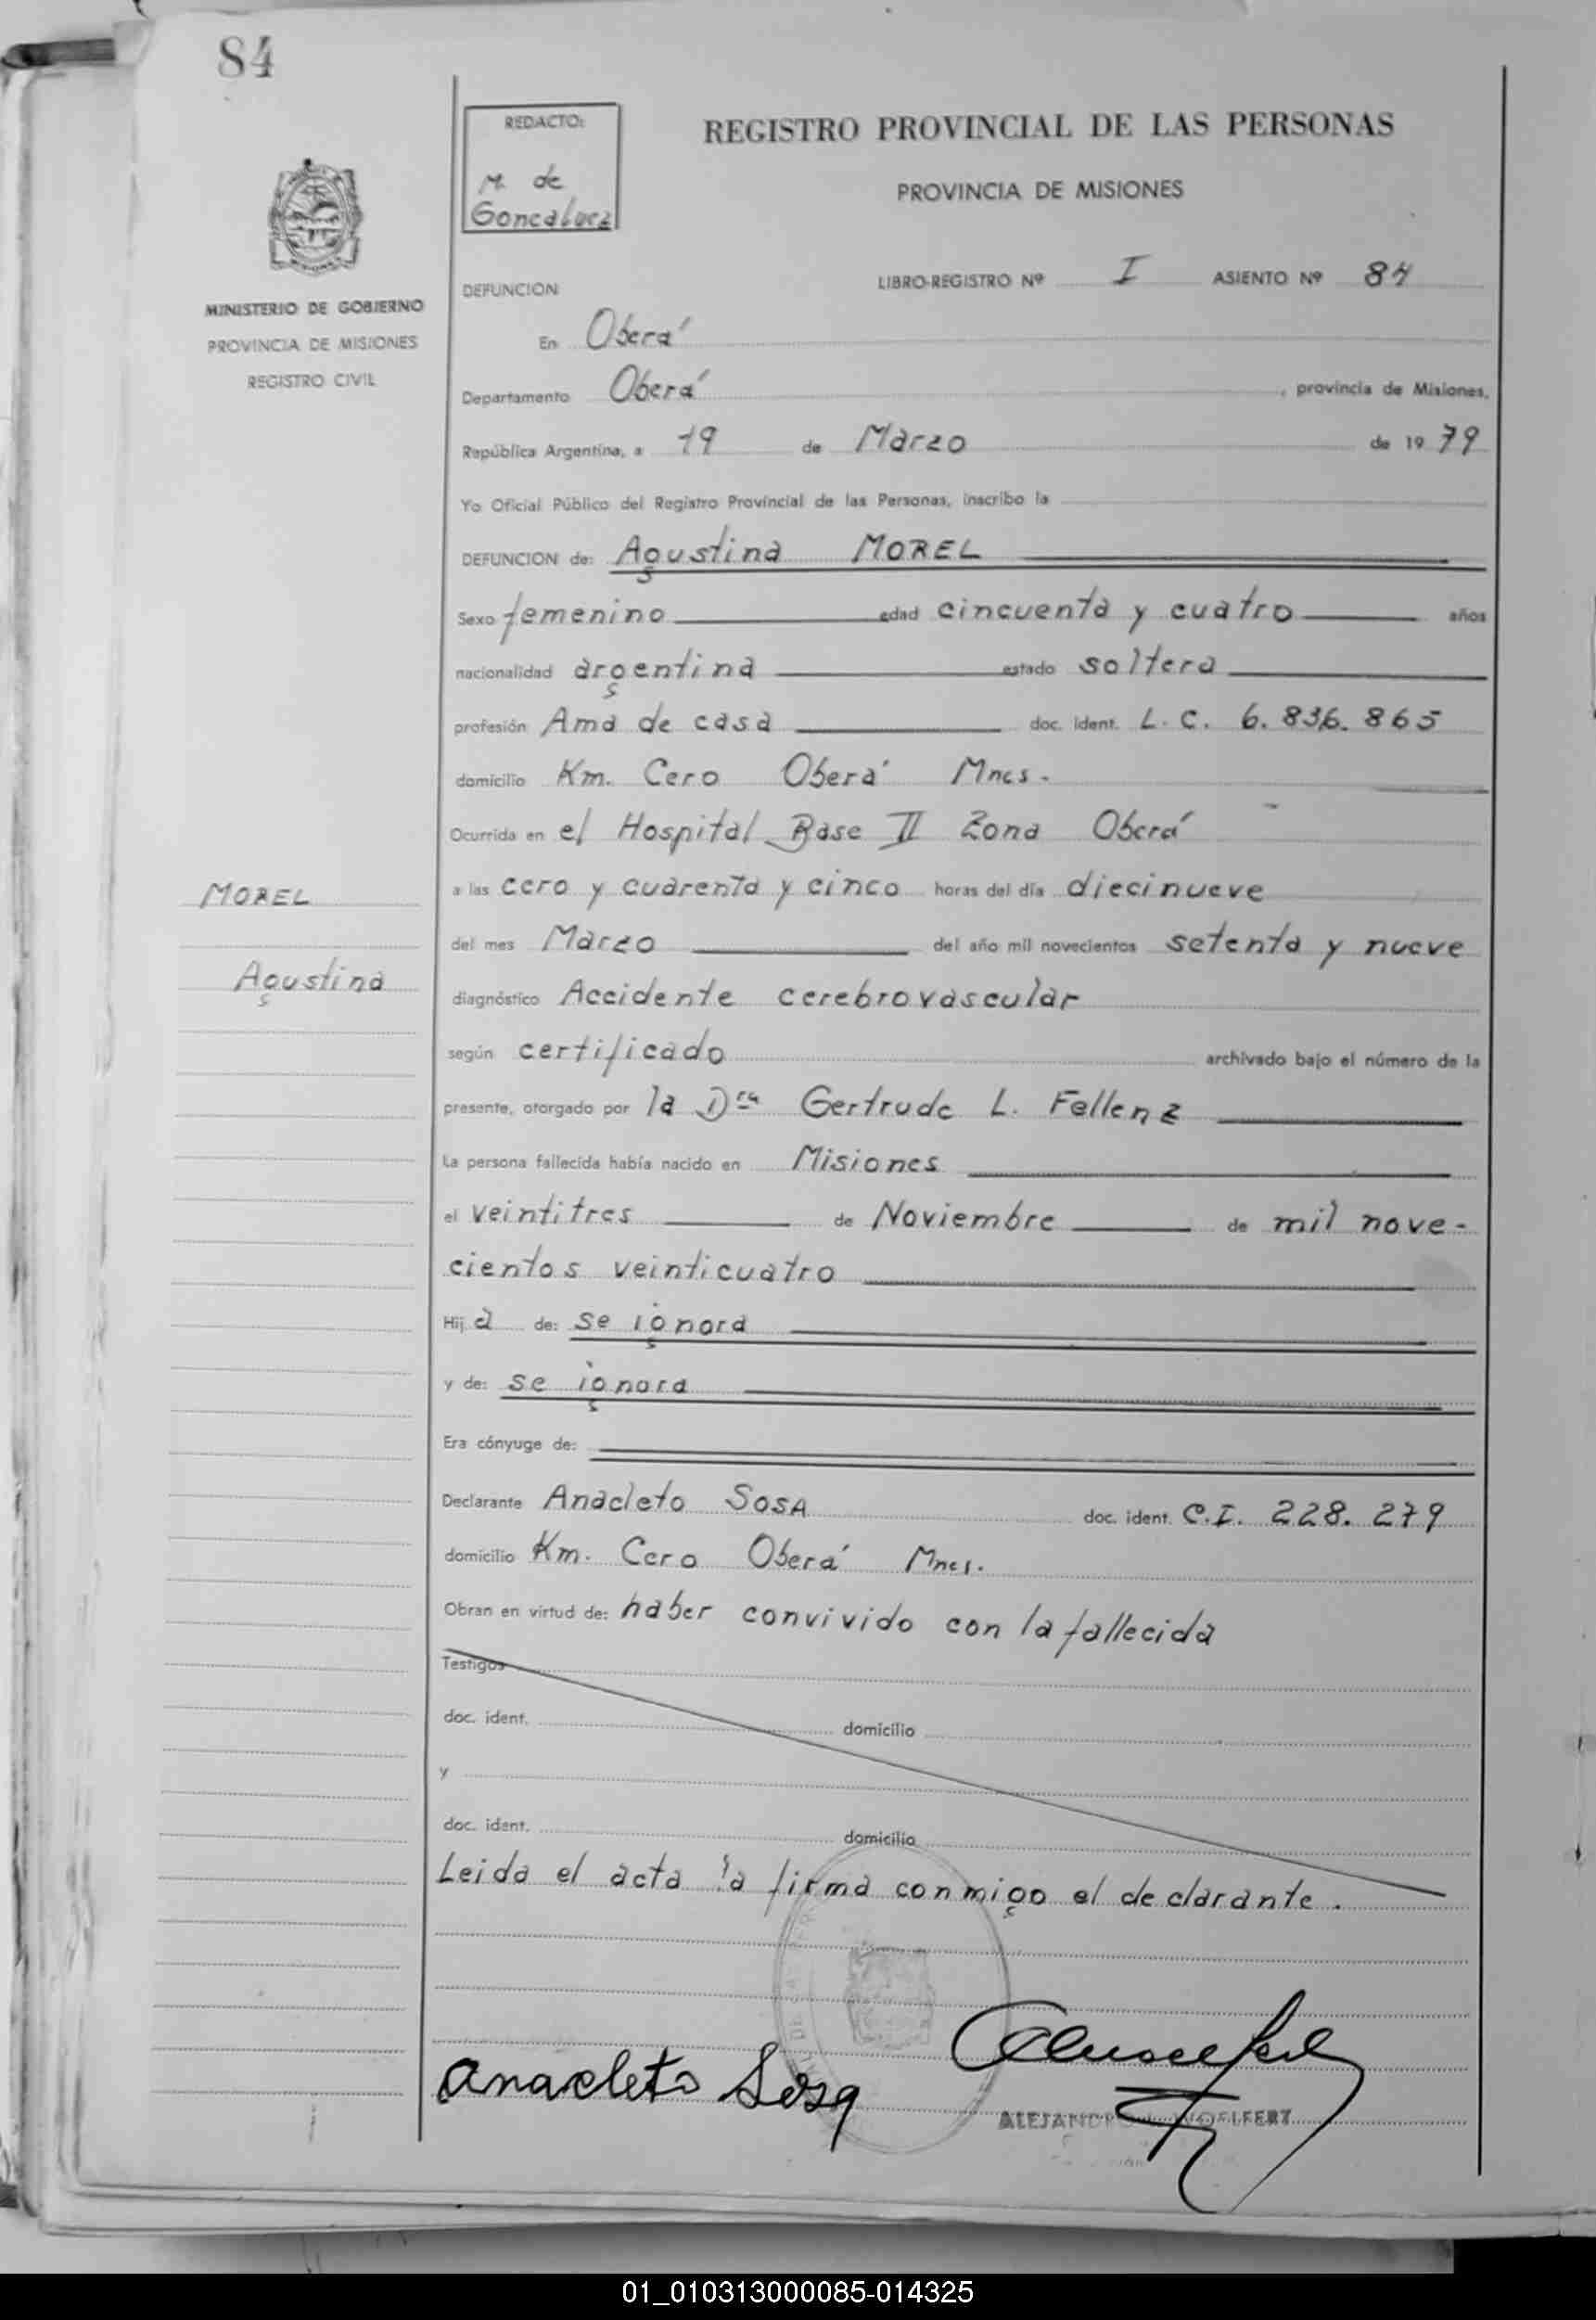 84
REDACTO:
M. de
Goncalvez
REGISTRO PROVINCIAL DE LAS PERSONAS
PROVINCIA DE MISIONES
MINISTERIO DE GOBIERNO
PROVINCIA DE MISIONES
REGISTRO CIVIL
LIBRO-REGISTRO Nº I ASIENTO Nº 84
DEFUNCION
En Oberá
Departamento Oberá, provincia de Misiones,
República Argentina, a 19 de Marzo de 1979
Yo Oficial Público del Registro Provincial de las Personas, inscribo la
DEFUNCION de: Agustina MOREL
Sexo femenino edad cincuenta y cuatro años
nacionalidad argentina estado soltera
profesión Ama de casa doc. ident. L. C. 6.836.865
domicilio Km. Cero Oberá Mnes.
Ocurrida en el Hospital Base II Zona Oberá
a las cero y cuarenta y cinco horas del día diecinueve
MOREL
del mes Marzo del año mil novecientos setenta y nueve
Agustina
diagnóstico Accidente cerebrovascular
según certificado archivado bajo el número de la
presente, otorgado por la Dra Gertrude L. Fellenz
La persona fallecida había nacido en Misiones
el veintitres de Noviembre de mil nove-
cientos veinticuatro
Hija de: se ignora
y de: se ignora
Era cónyuge de:
Declarante Anacleto SOSA doc. ident. C.I. 228.279
domicilio Km. Cero Oberá Mnes.
Obran en virtud de: haber convivido con la fallecida
Testigos
doc. ident. domicilio
y
doc. ident. domicilio
Leida el acta la firma conmigo el declarante.
Anacleto Sosa
01_010313000085-014325